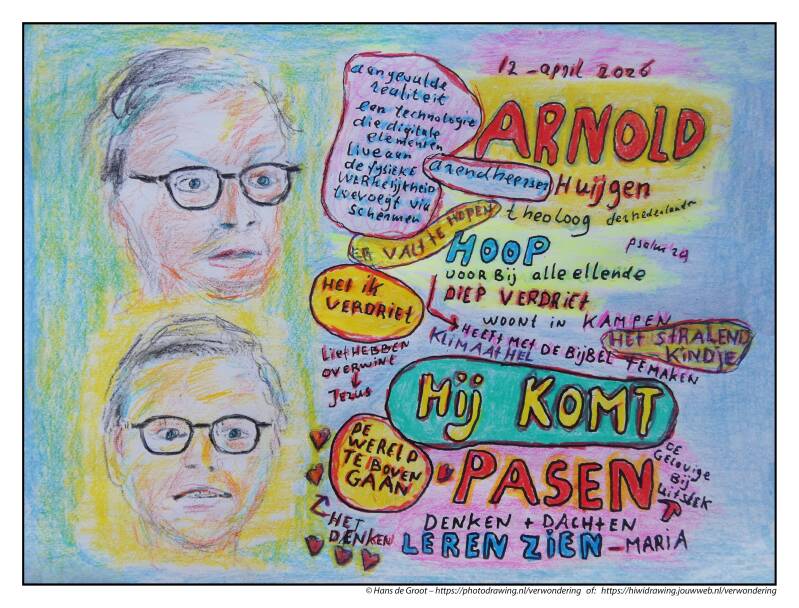 12 - april 2026
aangevulde
realiteit
een technologie
die digitale
elementen
live aan
de fysieke
WERKelijkheid
toevoegt via
schermen
ARNOLD
Huijgen
theoloog der nederlanden
ER VALT TE HOPEN
HOOP
psalm 29
VOOR BIJ alle ellende
DIEP VERDRIET
HET IK
VERDRIET
WOONT IN KAMPEN
HET STRALEND
KINDJE
HEEFT MET DE BIJBEL TE MAKEN
KLIMAATHEL
LIEFHEBBEN
OVERWINT
Jezus
Hij KOMT
DE
WERELD
TE BOVEN
GAAN
PASEN
DE
GELOVIGE
BIJ
UITSTEK
HET
DENKEN
DENKEN + DACHTEN
LEREN ZIEN - MARIA
© Hans de Groot – https://photodrawing.nl/verwondering of: https://hiwidrawing.jouwweb.nl/verwondering